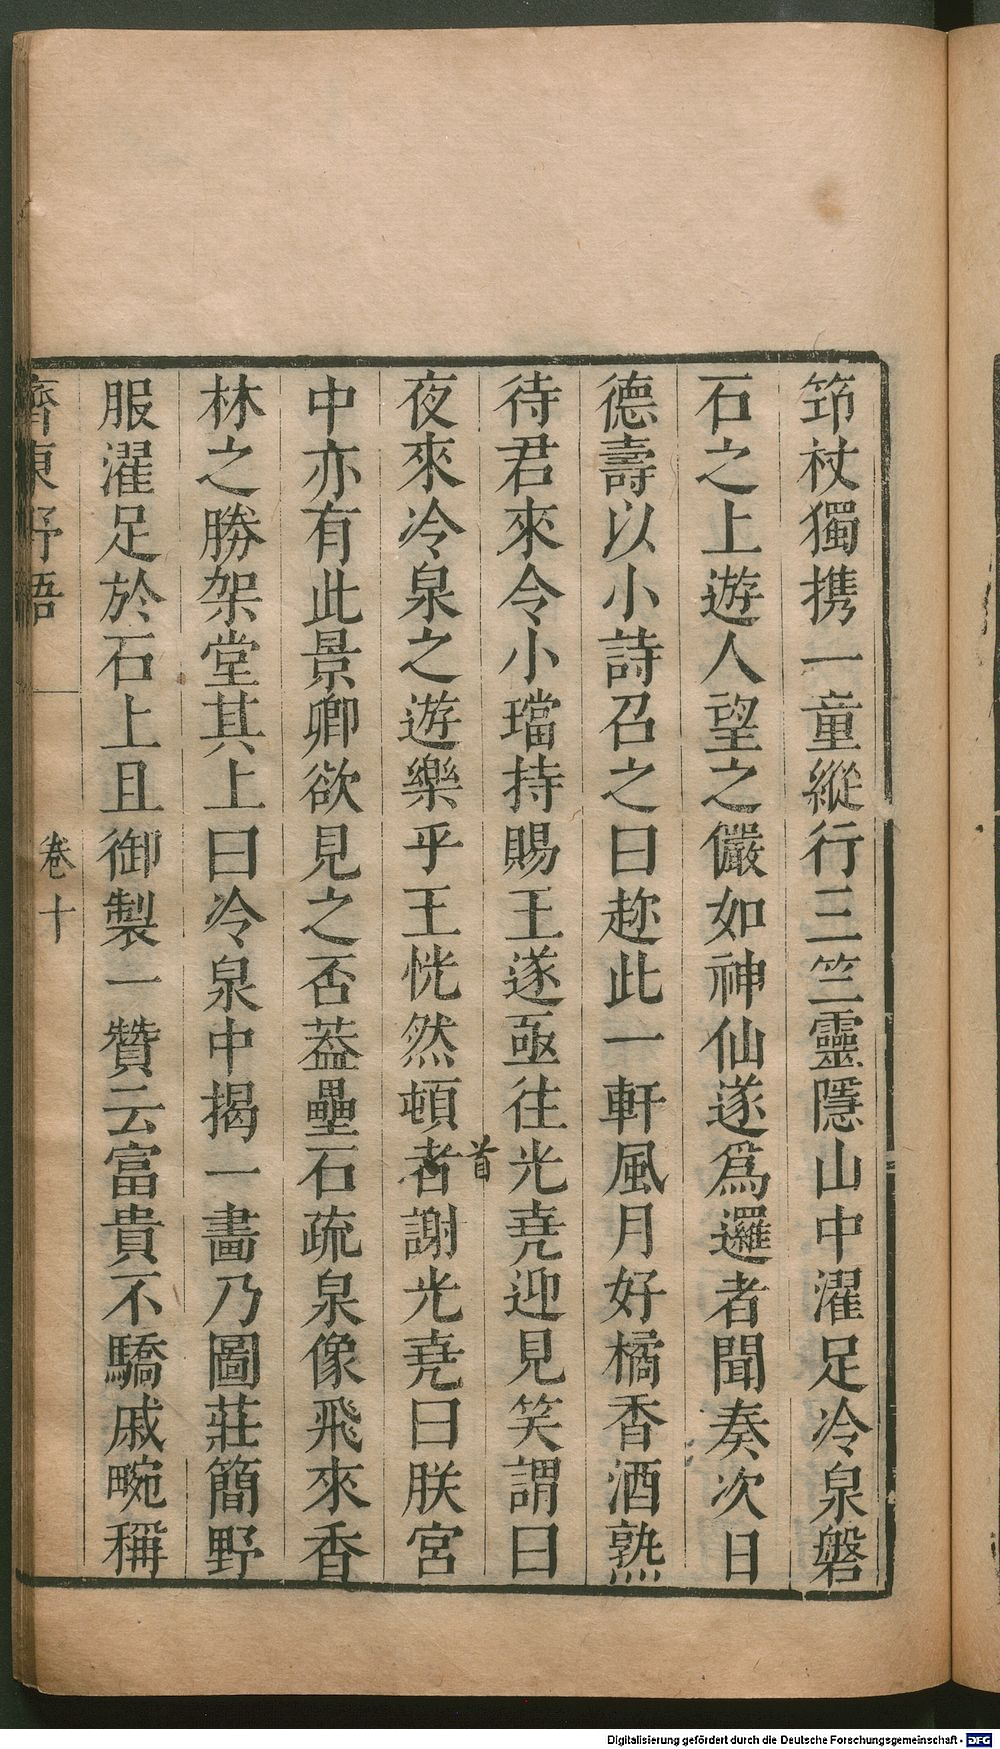 筇杖獨携一童縱行三竺靈隱山中濯足冷泉磐
石之上遊人望之儼如神仙遂爲邏者聞奏次日
德壽以小詩召之曰趂此一軒風月好橘香酒熟
待君來令小璫持賜王遂亟往光堯迎見笑謂曰
夜來冷泉之遊樂乎王恍然頓者謝光堯曰朕宮
首
中亦有此景卿欲見之否葢壘石疏泉像飛來香
林之勝架堂其上曰冷泉中揭一畵乃圖莊簡野
服濯足於石上且御製一贊云富貴不驕戚畹稱
齊東野語
卷十
Digitalisierung gefördert durch die Deutsche Forschungsgemeinschaft - DFG